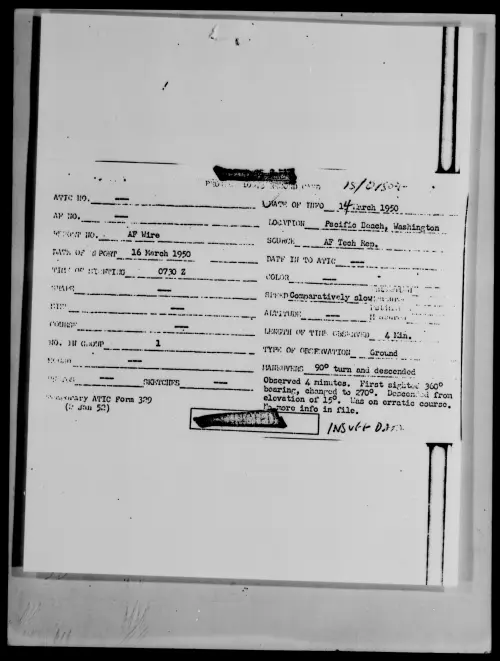 PROJECT 10073 RECORD CARD
ATIC NO. —
AF NO. —
REPORT NO. AF Wire
DATE OF REPORT 16 March 1950
TIME OF SIGHTING 0730 Z
SHAPE —
SIZE —
COURSE —
NO. IN GROUP 1
SOUND —
PHOTOS — SKETCHES —
Temporary ATIC Form 329
(2 Jan 52)
DATE OF INFO 14 March 1950
LOCATION Pacific Beach, Washington
SOURCE AF Tech Rep.
DATE IN TO ATIC —
COLOR —
SPEED Comparatively slow
ALTITUDE —
LENGTH OF TIME OBSERVED 4 Min.
TYPE OF OBSERVATION Ground
MANEUVERS 90° turn and descended
Observed 4 minutes. First sighted 360°
bearing, changed to 270°. Descended from
elevation of 15°. Was on erratic course.
No more info in file.
INSUFF DATA